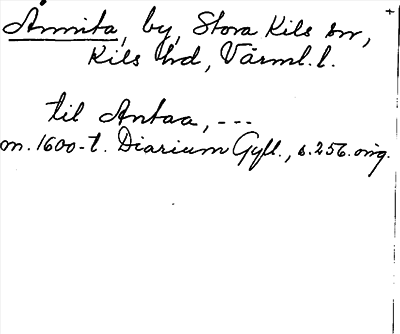 Åmnita, by, Stora Kils sn,
Kils hd, Värml. l.
til Antaa, ---
m. 1600-t. Diarium Gyll., s. 256. orig.